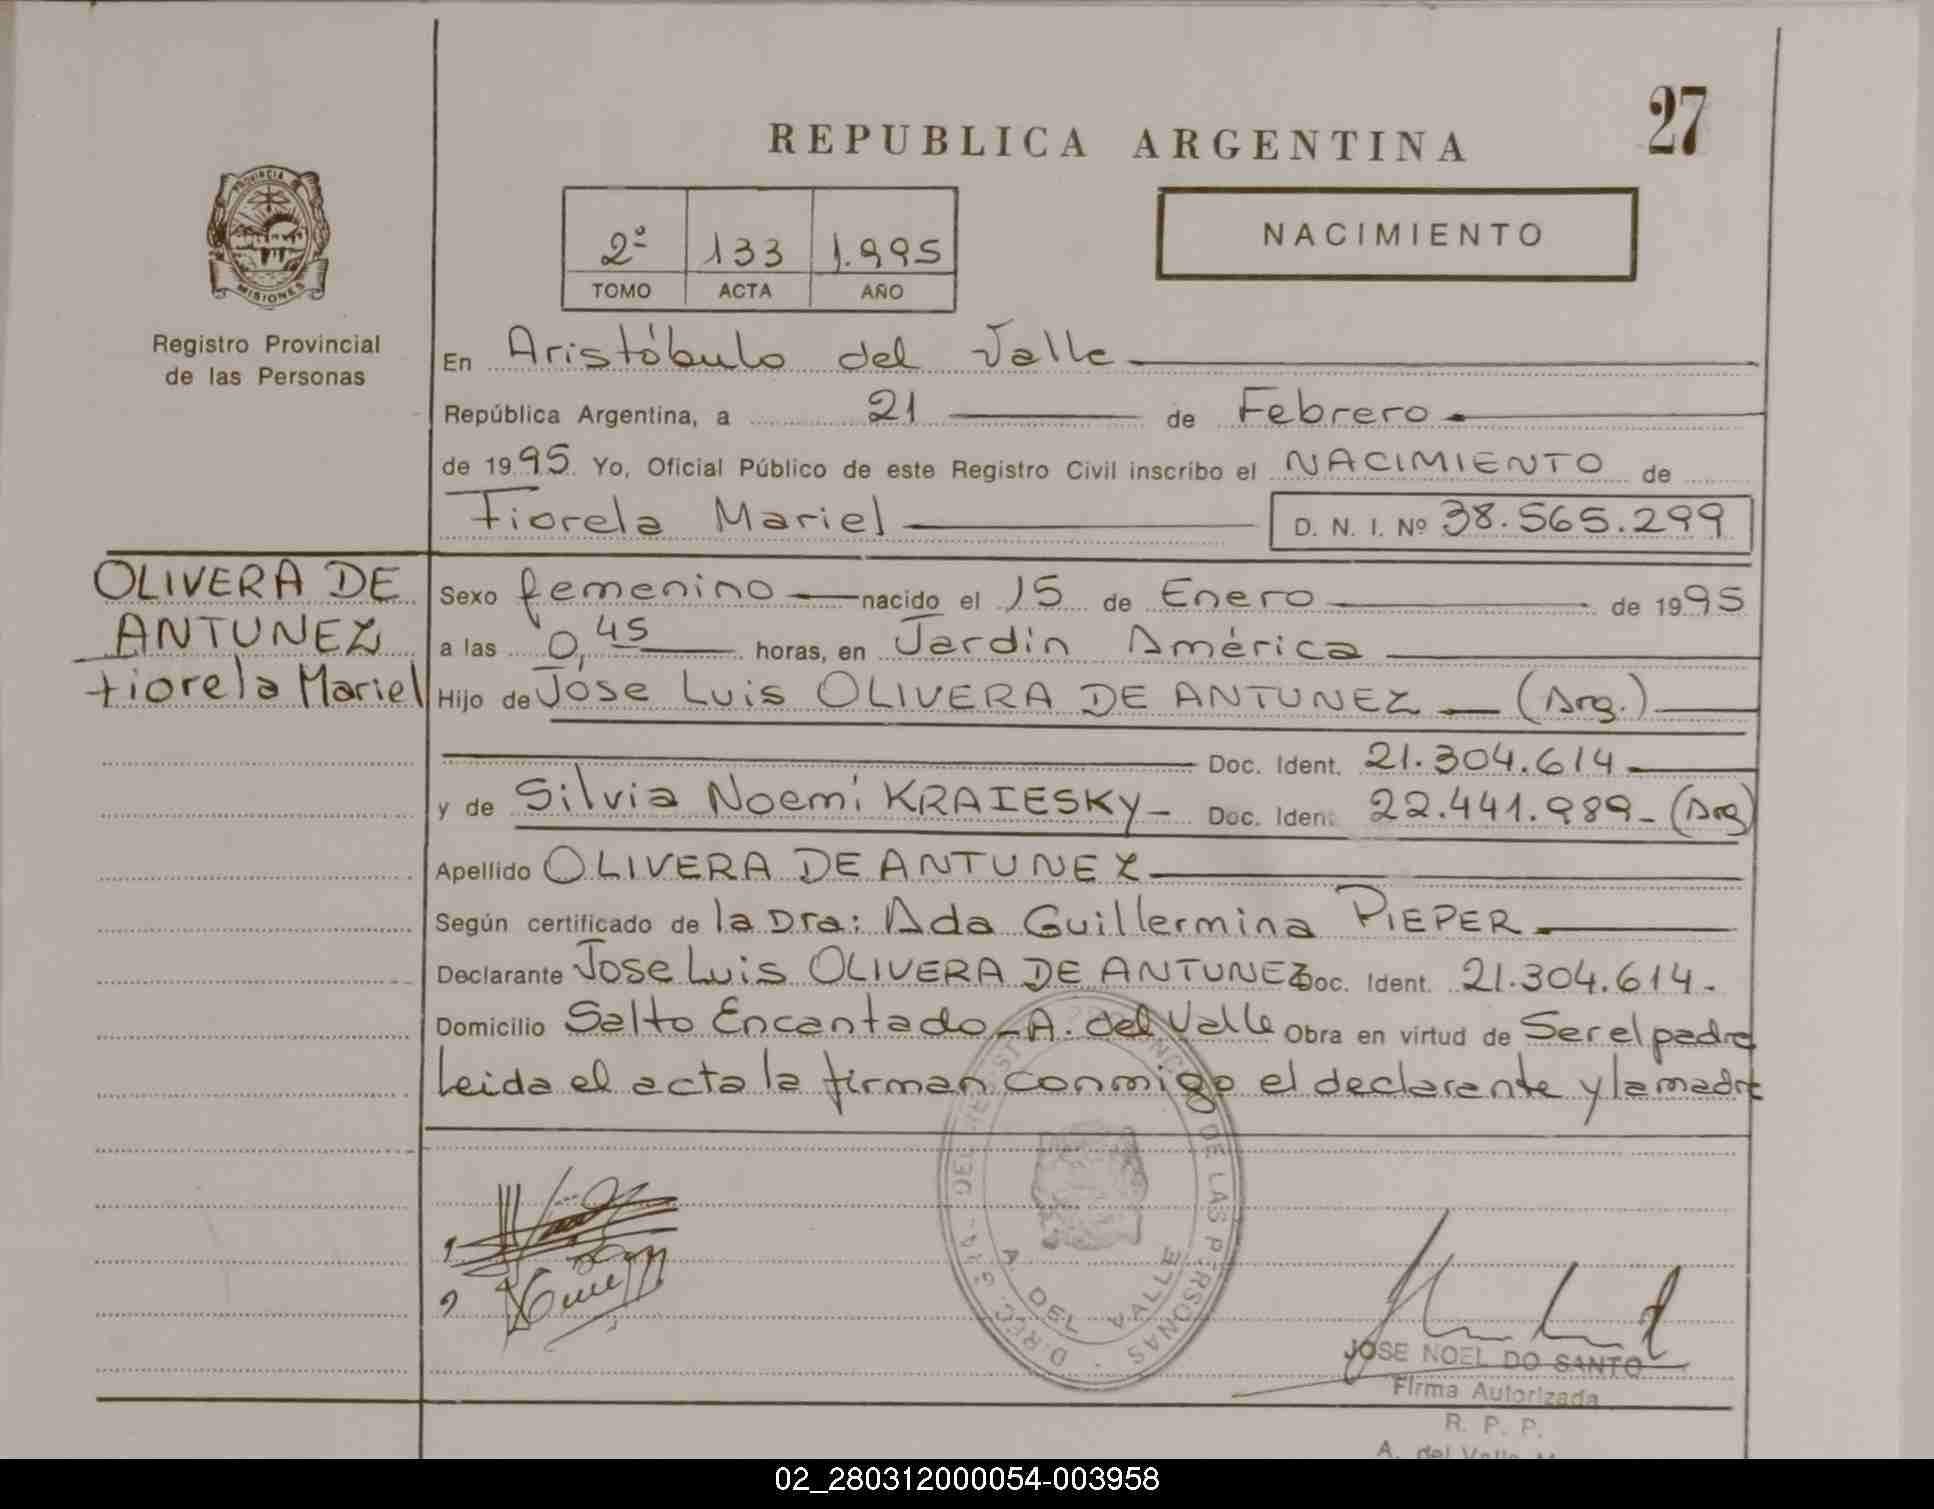 27
REPUBLICA ARGENTINA
PROVINCIA
MISIONES
Registro Provincial
de las Personas
2º 133 1.995
TOMO ACTA AÑO
NACIMIENTO
En Aristóbulo del Valle
República Argentina, a 21 de Febrero
de 1995 Yo, Oficial Público de este Registro Civil inscribo el NACIMIENTO de
Fiorela Mariel D. N. I. Nº 38.565.299
OLIVERA DE
ANTUNEZ
Fiorela Mariel
Sexo femenino nacido el 15 de Enero de 1995
a las 0,45 horas, en Jardín América
Hijo de Jose Luis OLIVERA DE ANTUNEZ (Arg.)
Doc. Ident. 21.304.614
y de Silvia Noemí KRAIESKY Doc. Ident. 22.441.989 (Arg)
Apellido OLIVERA DE ANTUNEZ
Según certificado de la Dra: Ada Guillermina PIEPER
Declarante Jose Luis OLIVERA DE ANTUNEZ Doc. Ident. 21.304.614.
Domicilio Salto Encantado - A. del Valle Obra en virtud de Ser el padre
Leida el acta la firman conmigo el declarante y la madre
1
2
DE LAS PERSONAS
A. DEL VALLE
JOSE NOEL DO SANTO
Firma Autorizada
R. P. P.
A. del Valle
02_280312000054-003958